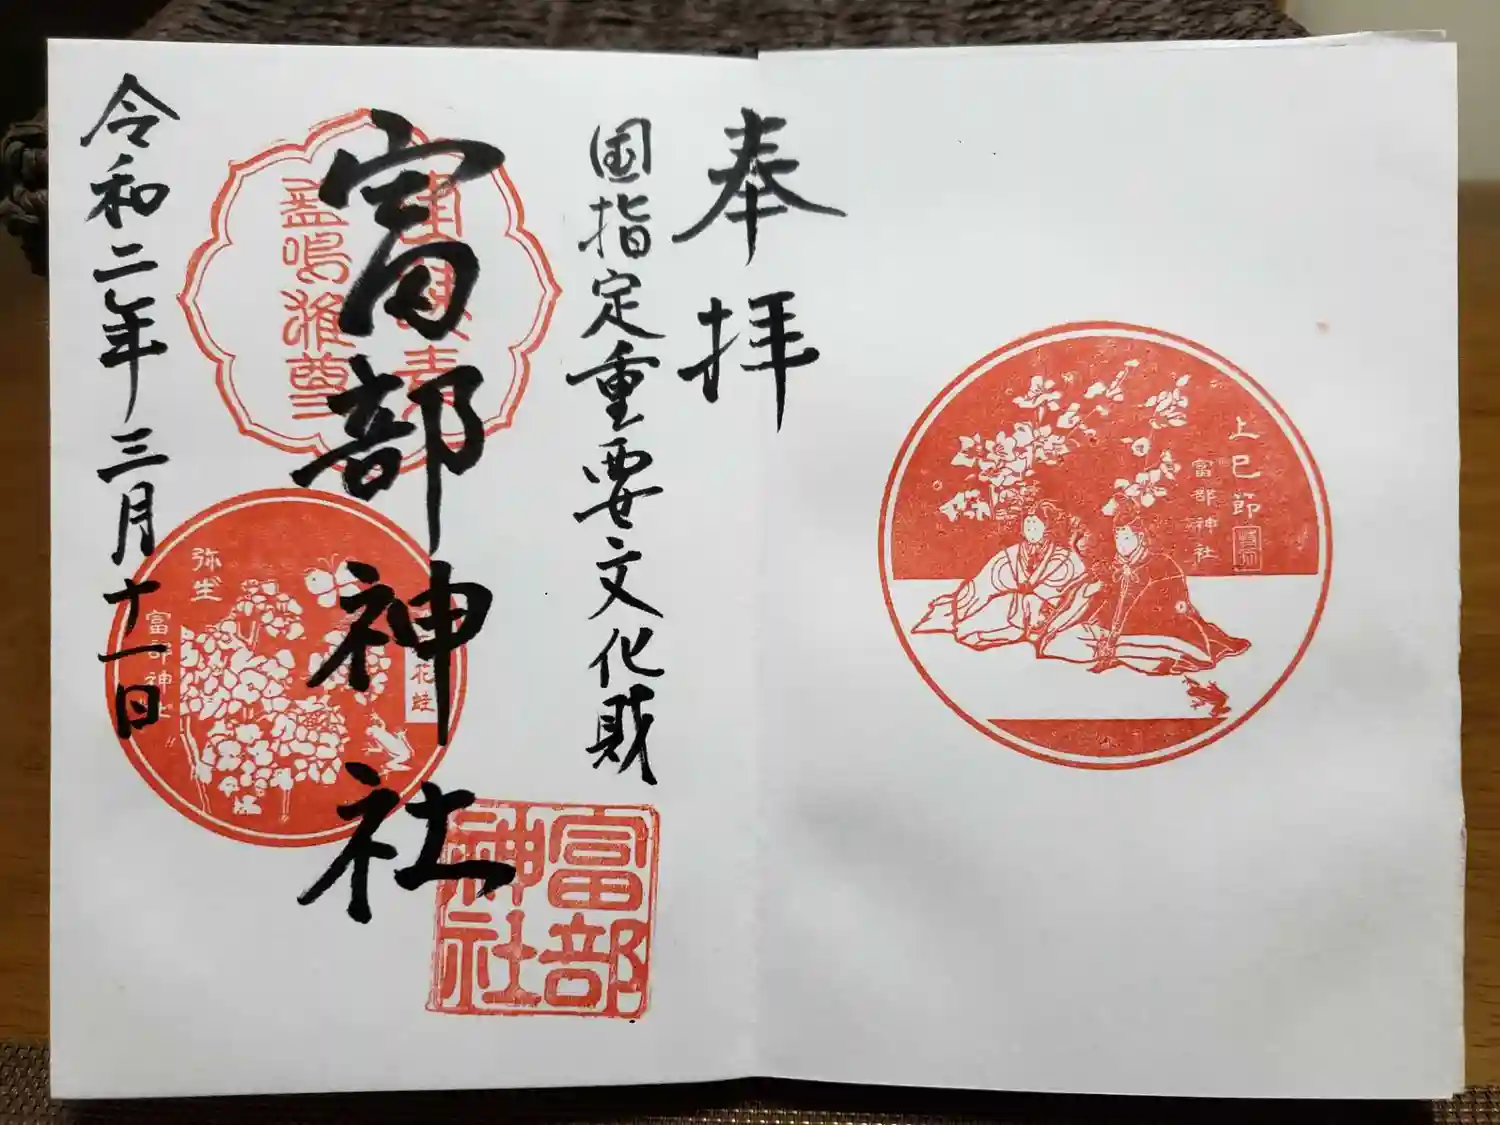 上巳節
富部神社
奉拝
国指定重要文化財
富部神社
富部
神社
建速素
盞嗚雅尊
弥生
花蛙
富部神社
令和二年三月十一日